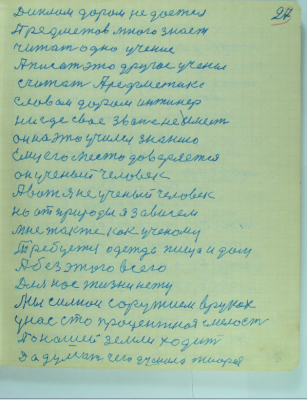 27
Диплом даром не дается
Предметов много знает
читат одно учение
А писат это другое учение
считат Аредметика
Словам даром интинер
нигде свое звание не имеет
он на это учился знанию
Ему его место доверяется
он ученый человек
А вот я не ученый человек
но от природы я зависем
мне также как ученому
Требуется одежда пища и дом
А без этого всего
Для нас жизни нету
Мы силной с оружием в руках
у нас сто процентная смелост
По нашей земли ходит
Задумат чего